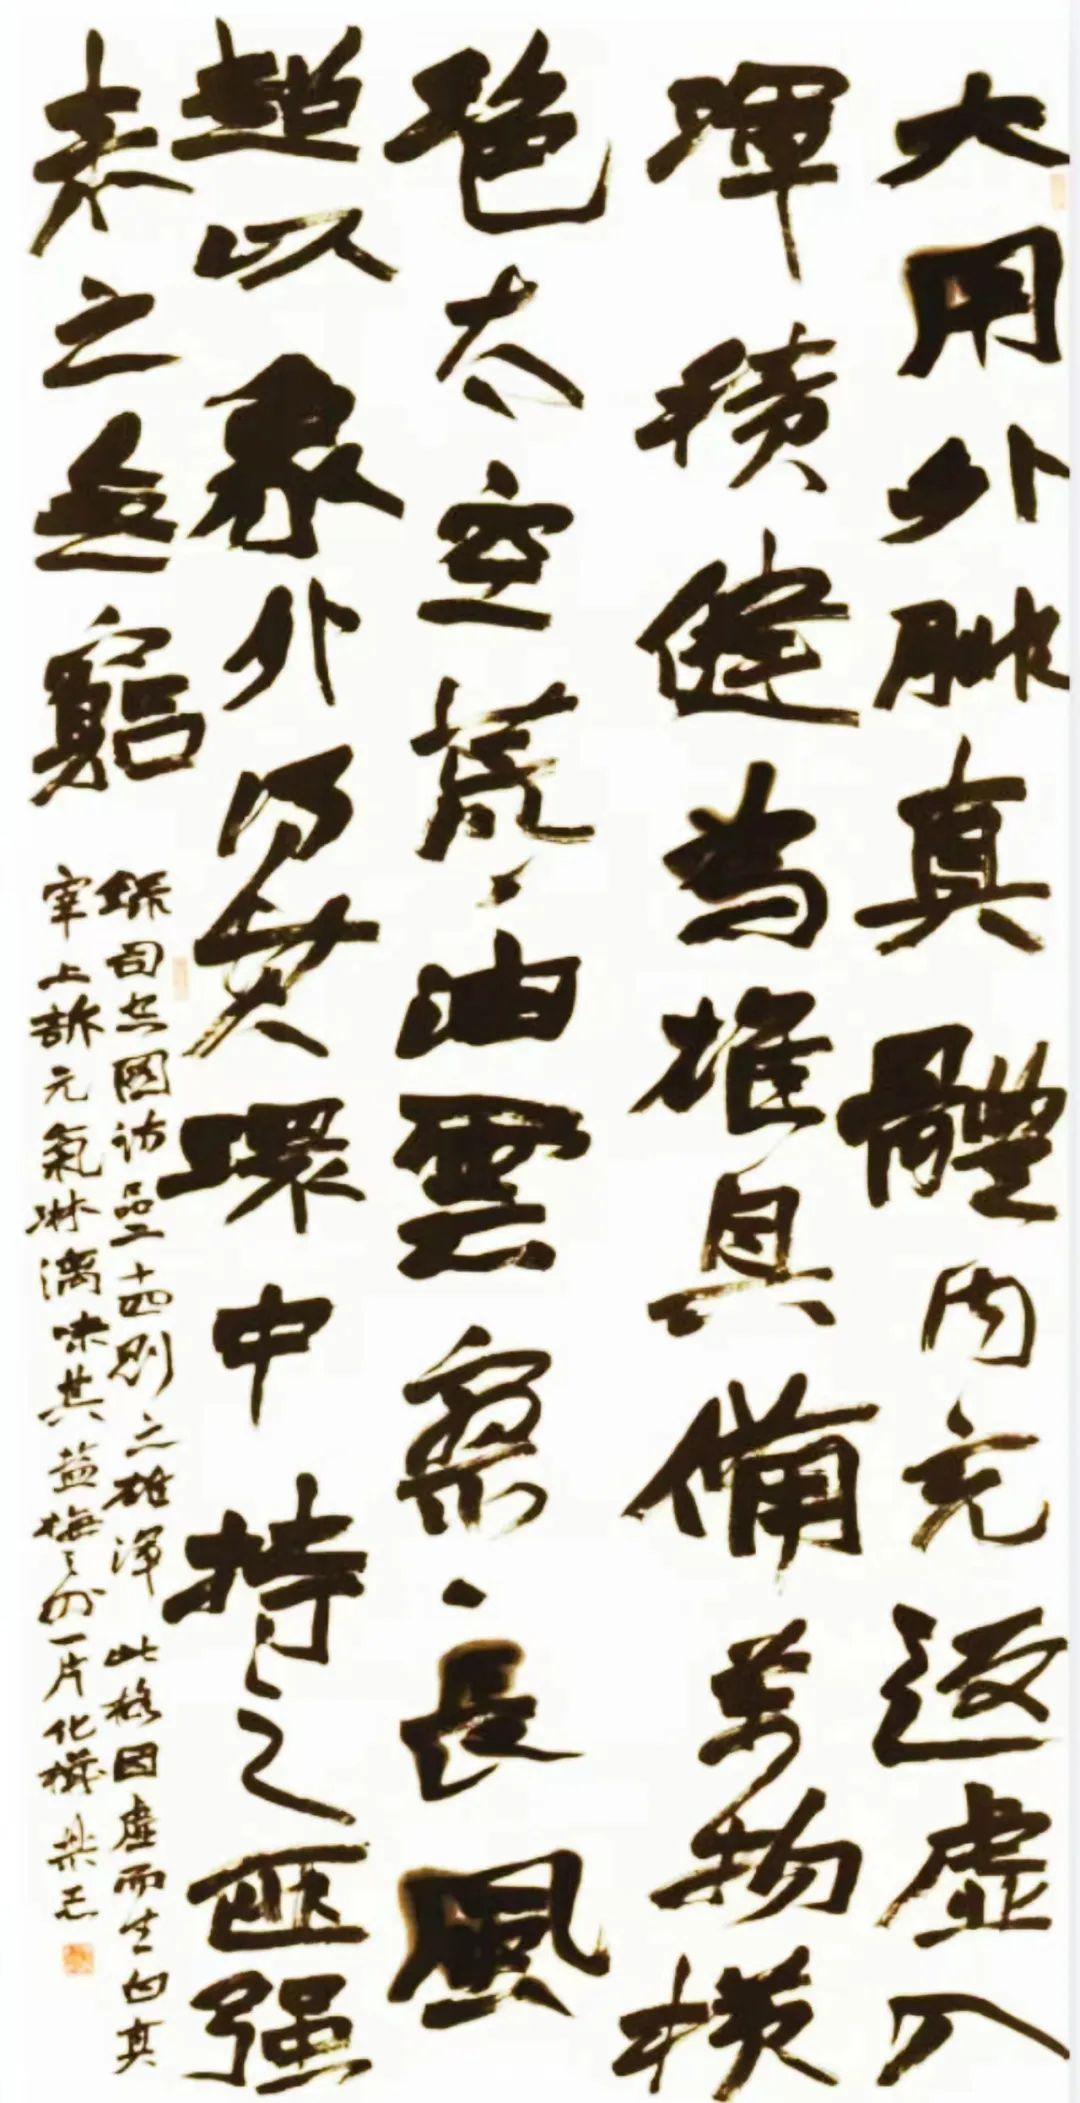 大用外腓真體內充返虛入
渾積健為雄具備萬物橫
絕太空荒荒油雲寥寥長風
超以象外得其環中持之匪强
来之無窮
錄司空圖詩品二十四則之雄渾 此格因虛而生白真
宰上訴元氣淋漓味其益梅之外一片化機